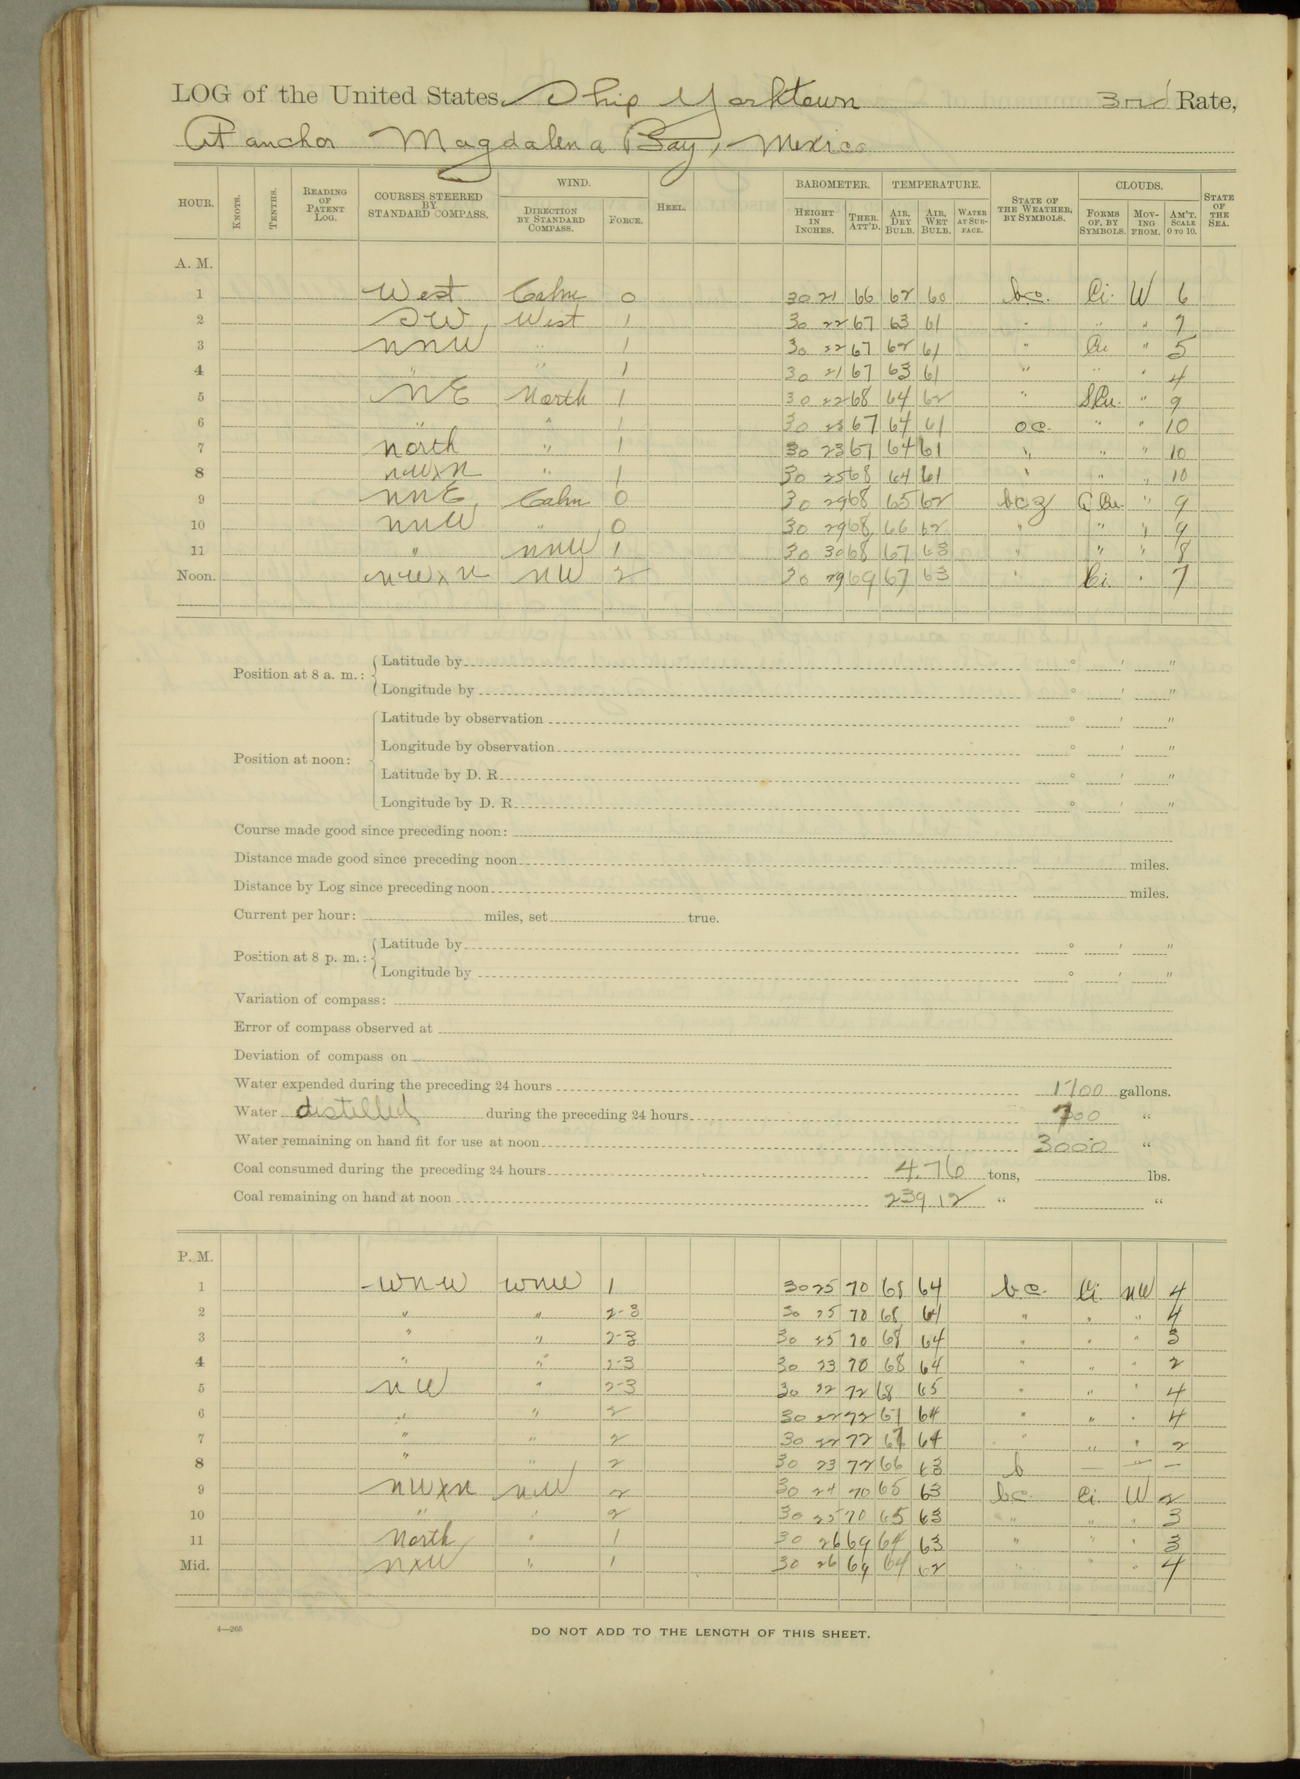 LOG of the United States Ship Yorktown 3rd Rate,
At anchor Magdalena Bay, Mexico
HOUR. KNOTS. TENTHS. READING OF PATENT LOG. COURSES STEERED BY STANDARD COMPASS. WIND. DIRECTION BY STANDARD COMPASS. FORCE. HEEL. BAROMETER. HEIGHT IN INCHES. THER. ATT'D. TEMPERATURE. AIR, DRY BULB. AIR, WET BULB. WATER AT SURFACE. STATE OF THE WEATHER, BY SYMBOLS. CLOUDS. FORMS OF, BY SYMBOLS. MOVING FROM. AM'T. SCALE 0 TO 10. STATE OF THE SEA.
A. M.
1 West Calm 0 30 21 66 62 60 bc. Ci. W 6
2 SW West 1 30 22 67 63 61 " " " 7
3 NNW " 1 30 22 67 62 61 " Cu " 5
4 " " 1 30 21 67 63 61 " " " 4
5 NE North 1 30 22 68 64 62 " SCu. " 9
6 " " 1 30 23 67 64 61 oc. " " 10
7 North " 1 30 23 67 64 61 " " " 10
8 NWxN " 1 30 25 68 64 61 " " " 10
9 NNE Calm 0 30 29 68 65 62 bcz C Cu. " 9
10 NNW " 0 30 29 68 66 62 " " " 9
11 " NNW 1 30 30 68 67 63 " " " 8
Noon. NWxN NW 2 30 29 69 67 63 " Ci. " 7
Position at 8 a. m.: Latitude by ° ' "
Longitude by ° ' "
Position at noon: Latitude by observation ° ' "
Longitude by observation ° ' "
Latitude by D. R. ° ' "
Longitude by D. R. ° ' "
Course made good since preceding noon:
Distance made good since preceding noon miles.
Distance by Log since preceding noon miles.
Current per hour: miles, set true.
Position at 8 p. m.: Latitude by ° ' "
Longitude by ° ' "
Variation of compass:
Error of compass observed at
Deviation of compass on
Water expended during the preceding 24 hours 1700 gallons.
Water distilled during the preceding 24 hours 700 "
Water remaining on hand fit for use at noon 3000 "
Coal consumed during the preceding 24 hours 4.76 tons, lbs.
Coal remaining on hand at noon 239.12 " "
P. M.
1 WNW WNW 1 30 25 70 68 64 bc. Ci NW 4
2 " " 2-3 30 25 70 68 64 " " " 4
3 " " 2-3 30 25 70 68 64 " " " 3
4 " " 2-3 30 23 70 68 64 " " " 2
5 NW " 2-3 30 22 72 68 65 " " " 4
6 " " 2 30 22 72 67 64 " " " 4
7 " " 2 30 22 72 67 64 " " " 2
8 " " 2 30 23 72 66 63 b — — —
9 NWxN NW 2 30 24 70 65 63 bc Ci. W 2
10 " " 2 30 25 70 65 63 " " " 3
11 North " 1 30 26 69 64 63 " " " 3
Mid. NxW " 1 30 26 69 64 62 " " " 4
4—265
DO NOT ADD TO THE LENGTH OF THIS SHEET.